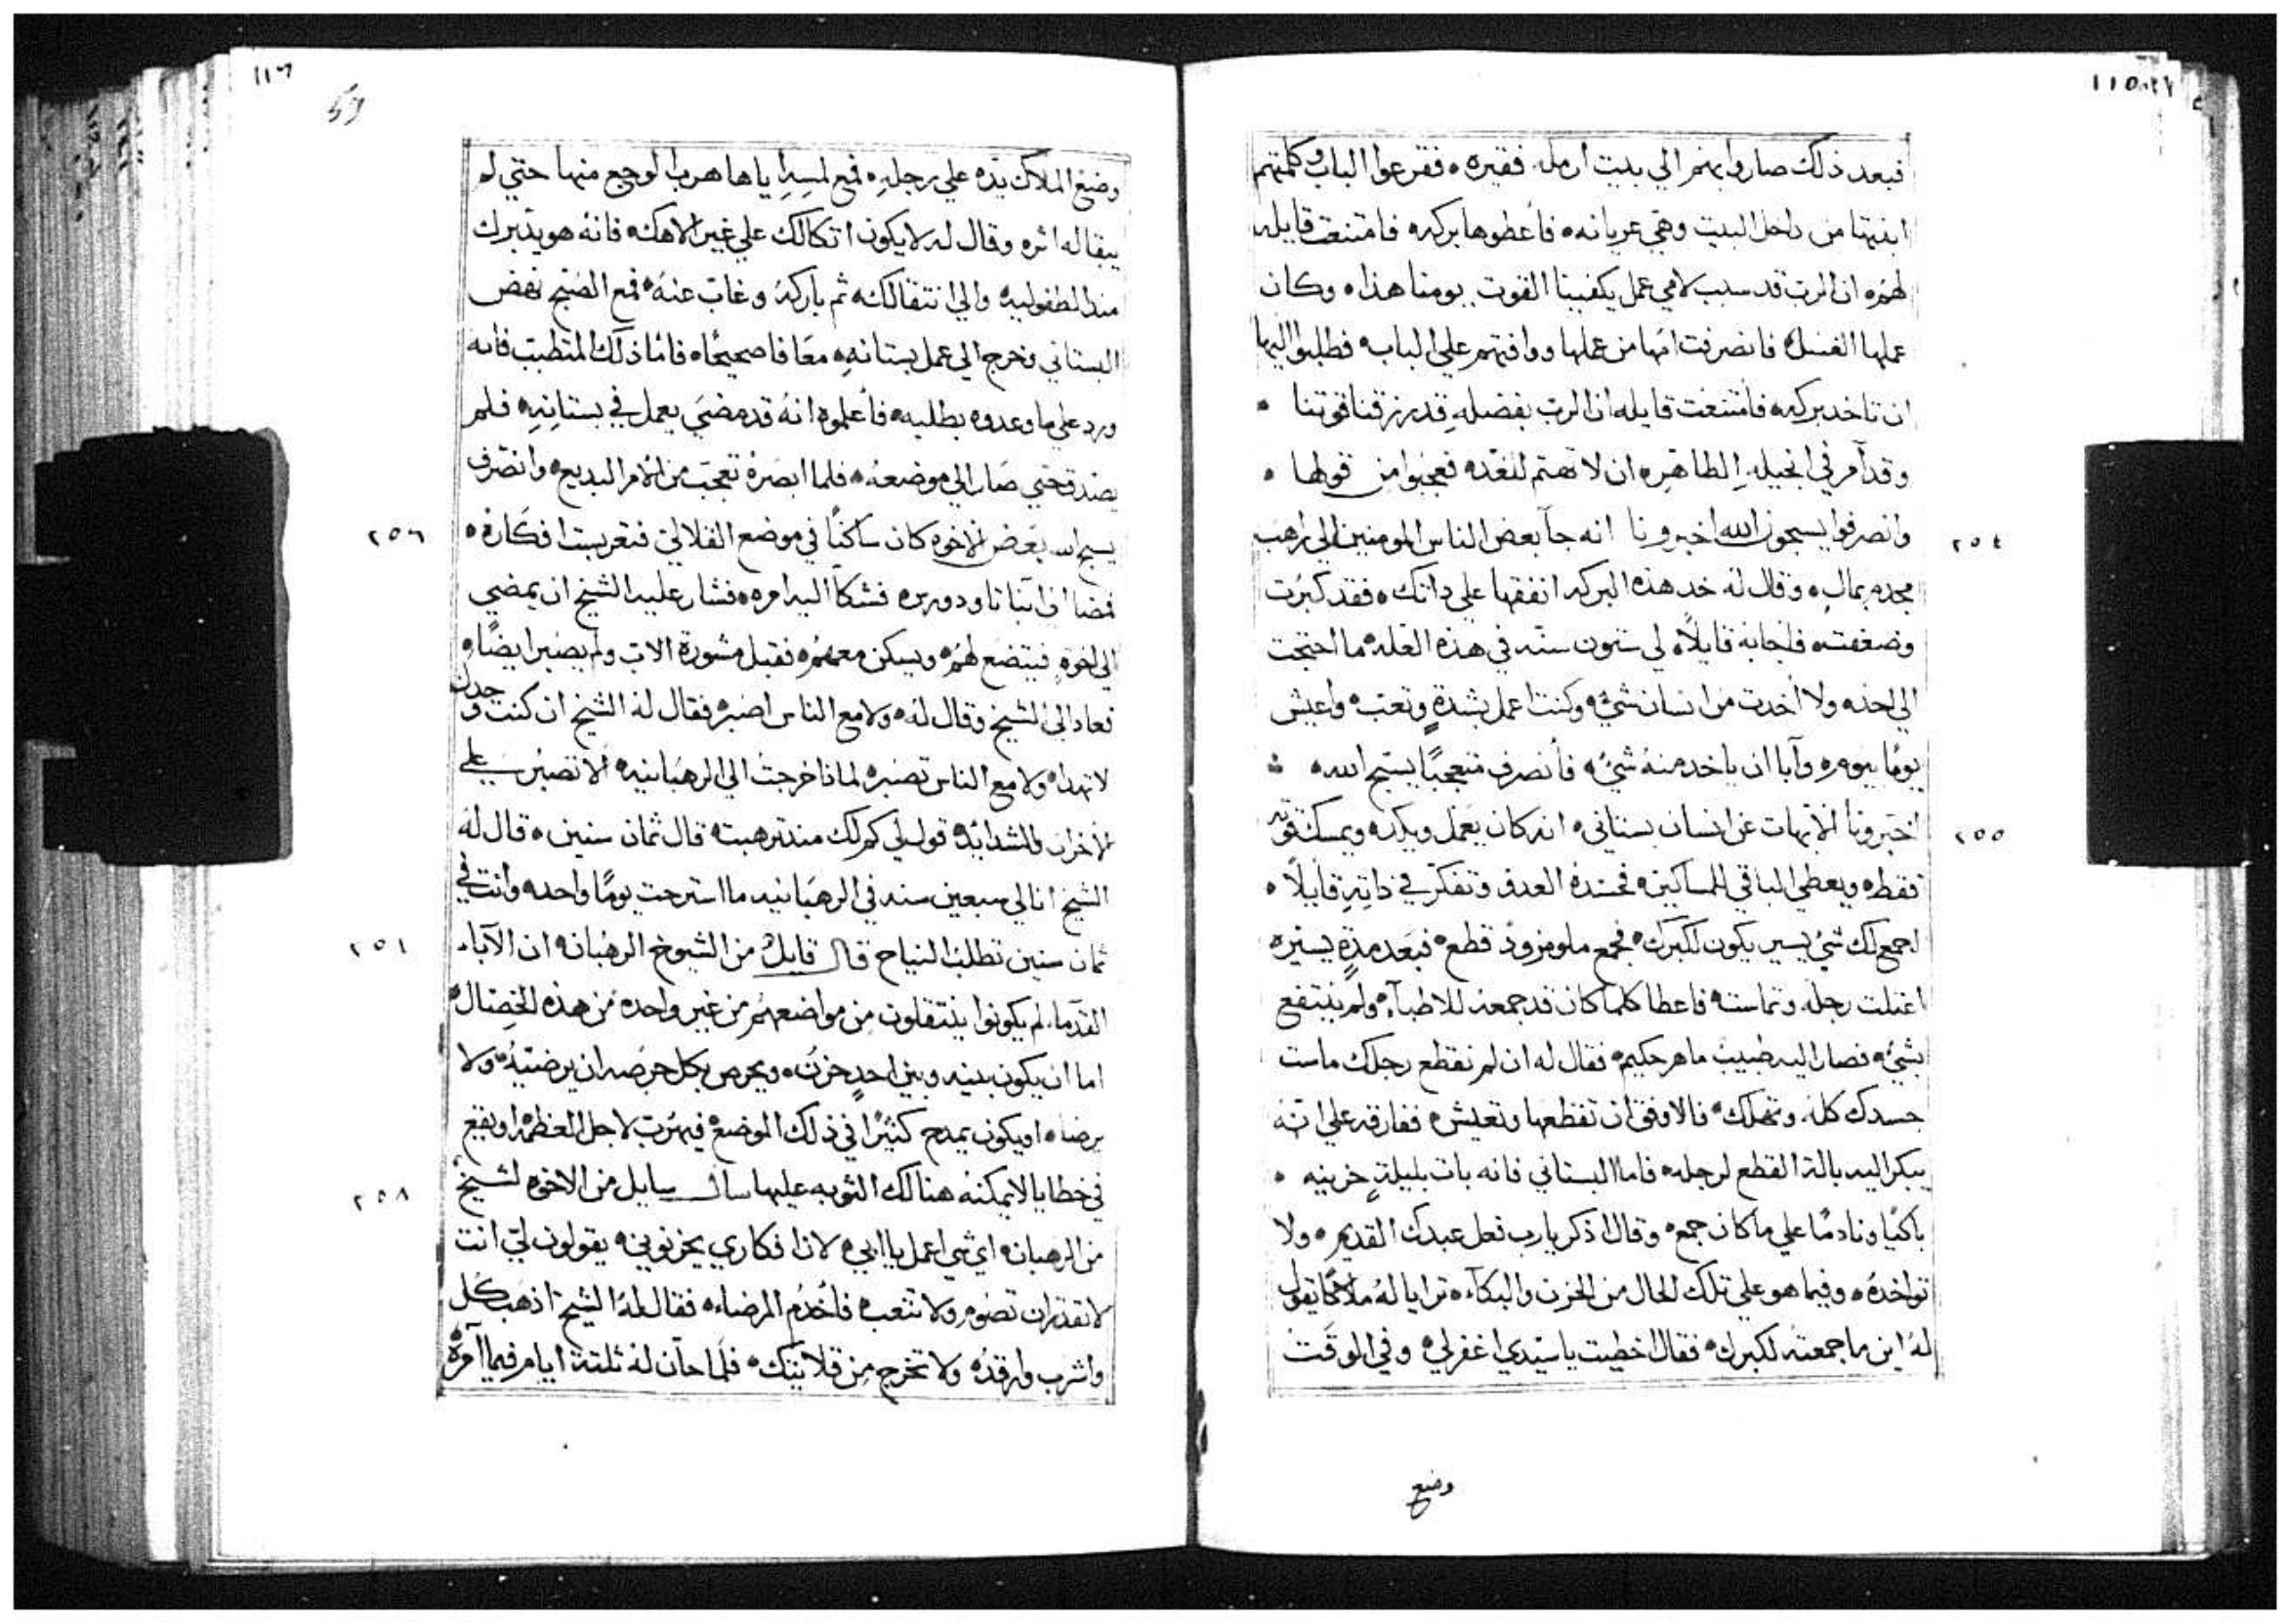 ١١٥
فبعد ذلك صاروا بهم الي بيت ارمله فقيره ه فقرعوا الباب وكلمتهم
ابنتها من داخل البيت وهي عريانه ه فأعطوها بركه فامتنعت قايله
لهم ه ان الرب قد سبب لامي عمل يكفينا القوت يومنا هذا ه وكان
عملها الغسل فانصرفت امها من عملها ووافتهم علي الباب ه فطلبوا اليها
ان تاخد بركه ه فأمتنعت قايله ان الرب بفضله قد رزقنا قوتنا ه
وقد آمر في انجيله الطاهره ان لا تهتم للغد ه فعجبوا من قولها ه
وانصرفوا يسبحون الله اخبرونا انه جآ بعض الناس المومنين الي راهب
٢٥٤
مجدم بمال ه وقال له خد هذه البركه انفقها علي داتك ه فقد كبرت
وضعفت ه فاجابه قايلاً ه لي ستون سنه في هذه العله ما احتجت
الي احد ه ولا أخدت من انسان شيء وكنت اعمل بشدةٍ وتعب ه واعيش
يومًا بيوم ه وآبا ان ياخد منه شيء فأنصرف متعجبًا يسبح الله ه
اخبرونا الابهات عن انسان بستاني ه انه كان يعمل ويكد ه ويمسك قوته
٢٥٥
فقط ه ويعطي الباقي للمساكين ه فحسده العدو وتفكر في ذاته قايلاً ه
اجمع لك شي يسير يكون لكبرك ه فجمع ملو مزود قطع ه فبعد مدةٍ يسيره
اعتلت رجله وتماست ه فاعطا كلما كان قد جمعه للاطبآء ولم ينتفع
بشيء ه فصار اليه طبيب ماهر حكيم ه فقال له ان لم نقطع رجلك ماست
جسدك كله وتهلك ه فالاوفق ان تقطعها وتعيش ه ففارقه علي انه
يبكر اليه بالة القطع لرجله ه فاما البستاني فانه بات بليلةٍ حزينه ه
باكيًا ونادمًا علي ما كان جمع ه وقال اذكر يارب فعل عبدك القديم ه ولا
تواخده ه وفيما هو علي تلك الحال من الحزن والبكآء ه ترايا له ملاكًا يقول
له اين ما جمعته لكبرك ه فقال اخطيت يا سيدي اغفر لي ه وفي الوقت
وضع
١١٦
59
وضع الملاك يده علي رجله ه فمع لمسه اياها هرب الوجع منها حتي لم
يبقا له اثره وقال له لا يكون اتكالك علي غير الاهك ه فانه هو يدبرك
مند الطفوليه والي انتقالك ه ثم باركه وغاب عنه ه فمع الصبح نهض
البستاني وخرج الي عمل بستانه ه معافا صحيحًا ه فاما ذلك المتطبب فانه
ورد علي ما وعدوه بطلبه ه فأعلموه انه قد مضي يعمل في بستانه ه فلم
يصدق حتي صار الي موضعه ه فلما ابصره تعجب من الامر البديع ه وانصرف
يسبح الله بعض الاخوه كان ساكنًا في موضع القلالي فتعربست افكاره ه
٢٥٦
فمضا الي آبنا تاودورس ه فشكا اليه امره ه فشار عليه الشيخ ان يمضي
الي اخوةٍ فيتضع لهم ه ويسكن معهم ه فقبل مشورة الاب ولم يصبر ايضًا ه
فعاد الي الشيخ وقال له ه ولا مع الناس اصبر ه فقال له الشيخ ان كنت وحدك
لا تهدا ه ولا مع الناس تصبر ه لماذا خرجت الي الرهبانيه ه الا تصبر علي
الأحزان والشدائد ه قول لي كم لك مند ترهبت ه قال ثمان سنين ه قال له
الشيخ انا لي سبعين سنه في الرهبانيه ما استرحت يومًا واحد ه وانت في
ثمان سنين تطلب النياح قال قايل من الشيوخ الرهبان ه ان الآباء
٢٥١
القدماء لم يكونوا ينتقلون من مواضعهم من غير واحده من هذه الخصال ه
اما ان يكون بينه وبين احدٍ حزن ه ويحرص بكل حرصه ان يرضيه ه ولا
يرضا ه او يكون يمدح كثيرًا في ذلك الموضع ه فيهرب لاجل العظمه او يقع
في خطايا لا يمكنه هنالك التوبه عليها سال سايل من الاخوه لشيخ
٢٥٨
من الرهبان ه اي شي اعمل يا ابي ه لان افكاري يحزنوني ه يقولون لي انت
لا تقدر ان تصوم ولا تتعب ه فأخدم المرضاء ه فقال له الشيخ اذهب كل
وأشرب وارقد ه ولا تخرج من قلايتك ه فلما حآن له ثلثة ايام فيما آمره